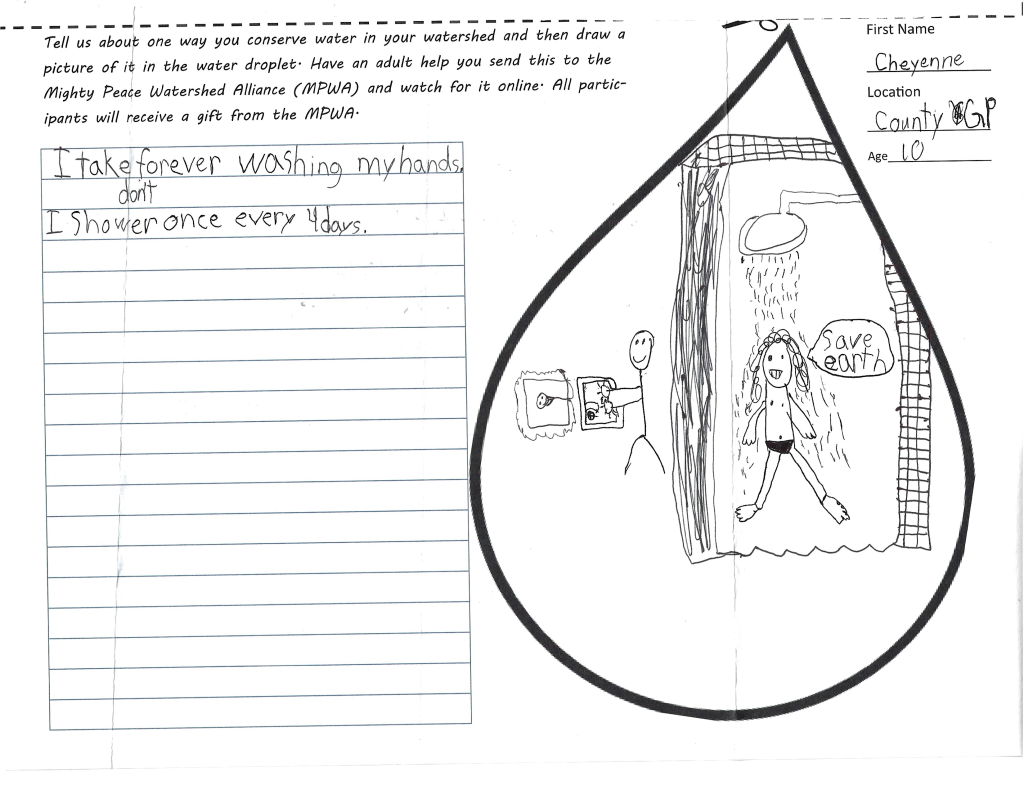 Tell us about one way you conserve water in your watershed and then draw a
picture of it in the water droplet. Have an adult help you send this to the
Mighty Peace Watershed Alliance (MPWA) and watch for it online. All partic-
ipants will receive a gift from the MPWA.
I take forever washing my hands.
don't
I Shower once every 4 days.
save
earth
First Name
Cheyenne
Location
County GP
Age 10